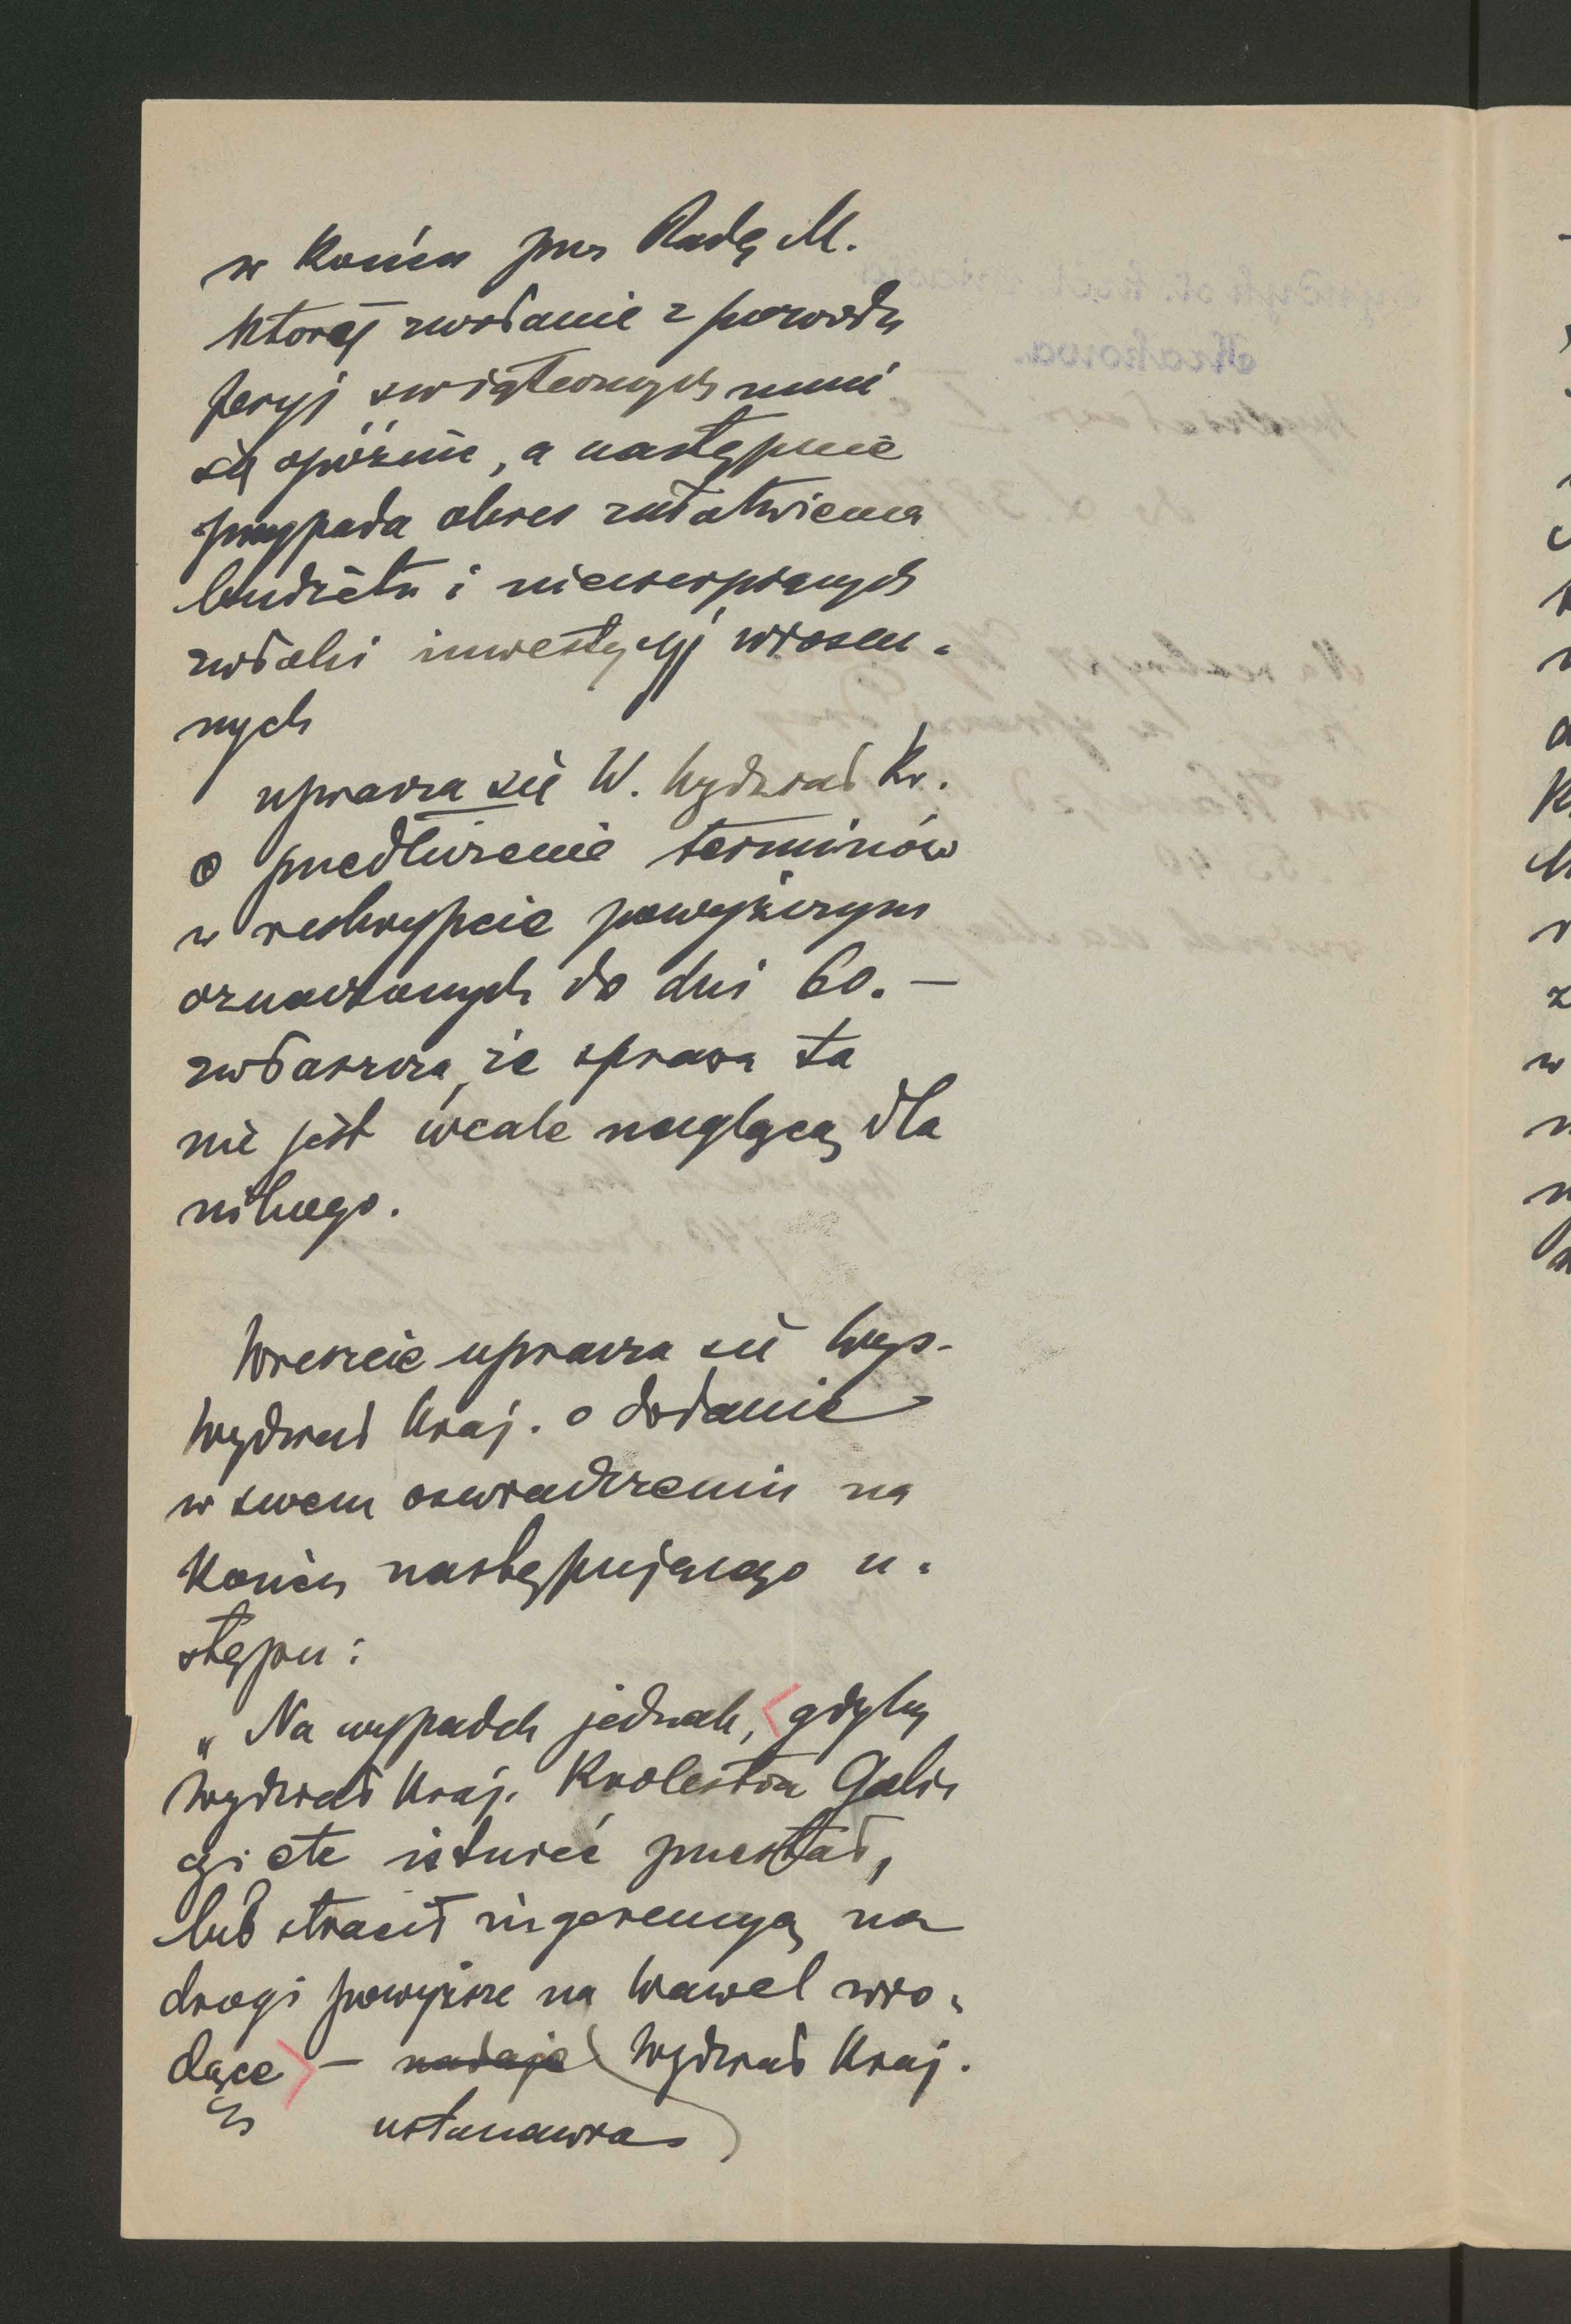 w końcu przez Radę M.
której zwołanie z powodu
feryj świątecznych musi
się opóźnić, a następnie
przypada okres załatwienia
budżetu i niecierpiących
zwłoki inwestycyj wiosen-
nych
uprasza się W. Wydział Kr.
o przedłużenie terminów
w reskrypcie powyższym
oznaczonych do dni 60.—
zwłaszcza, że sprawa ta
nie jest wcale naglącą dla
nikogo.
Wreszcie uprasza się Wys.
Wydział Kraj. o dodanie
w swem oświadczeniu na
końcu następującego u-
stępu:
„Na wypadek jednak, gdyby
Wydział Kraj. Królestwa Galic
cyi etc istnieć przestał,
lub stracił ingerencyą na
drogi powyższe na Wawel wio-
dące — nadaje Wydział Kraj.
ustanawia